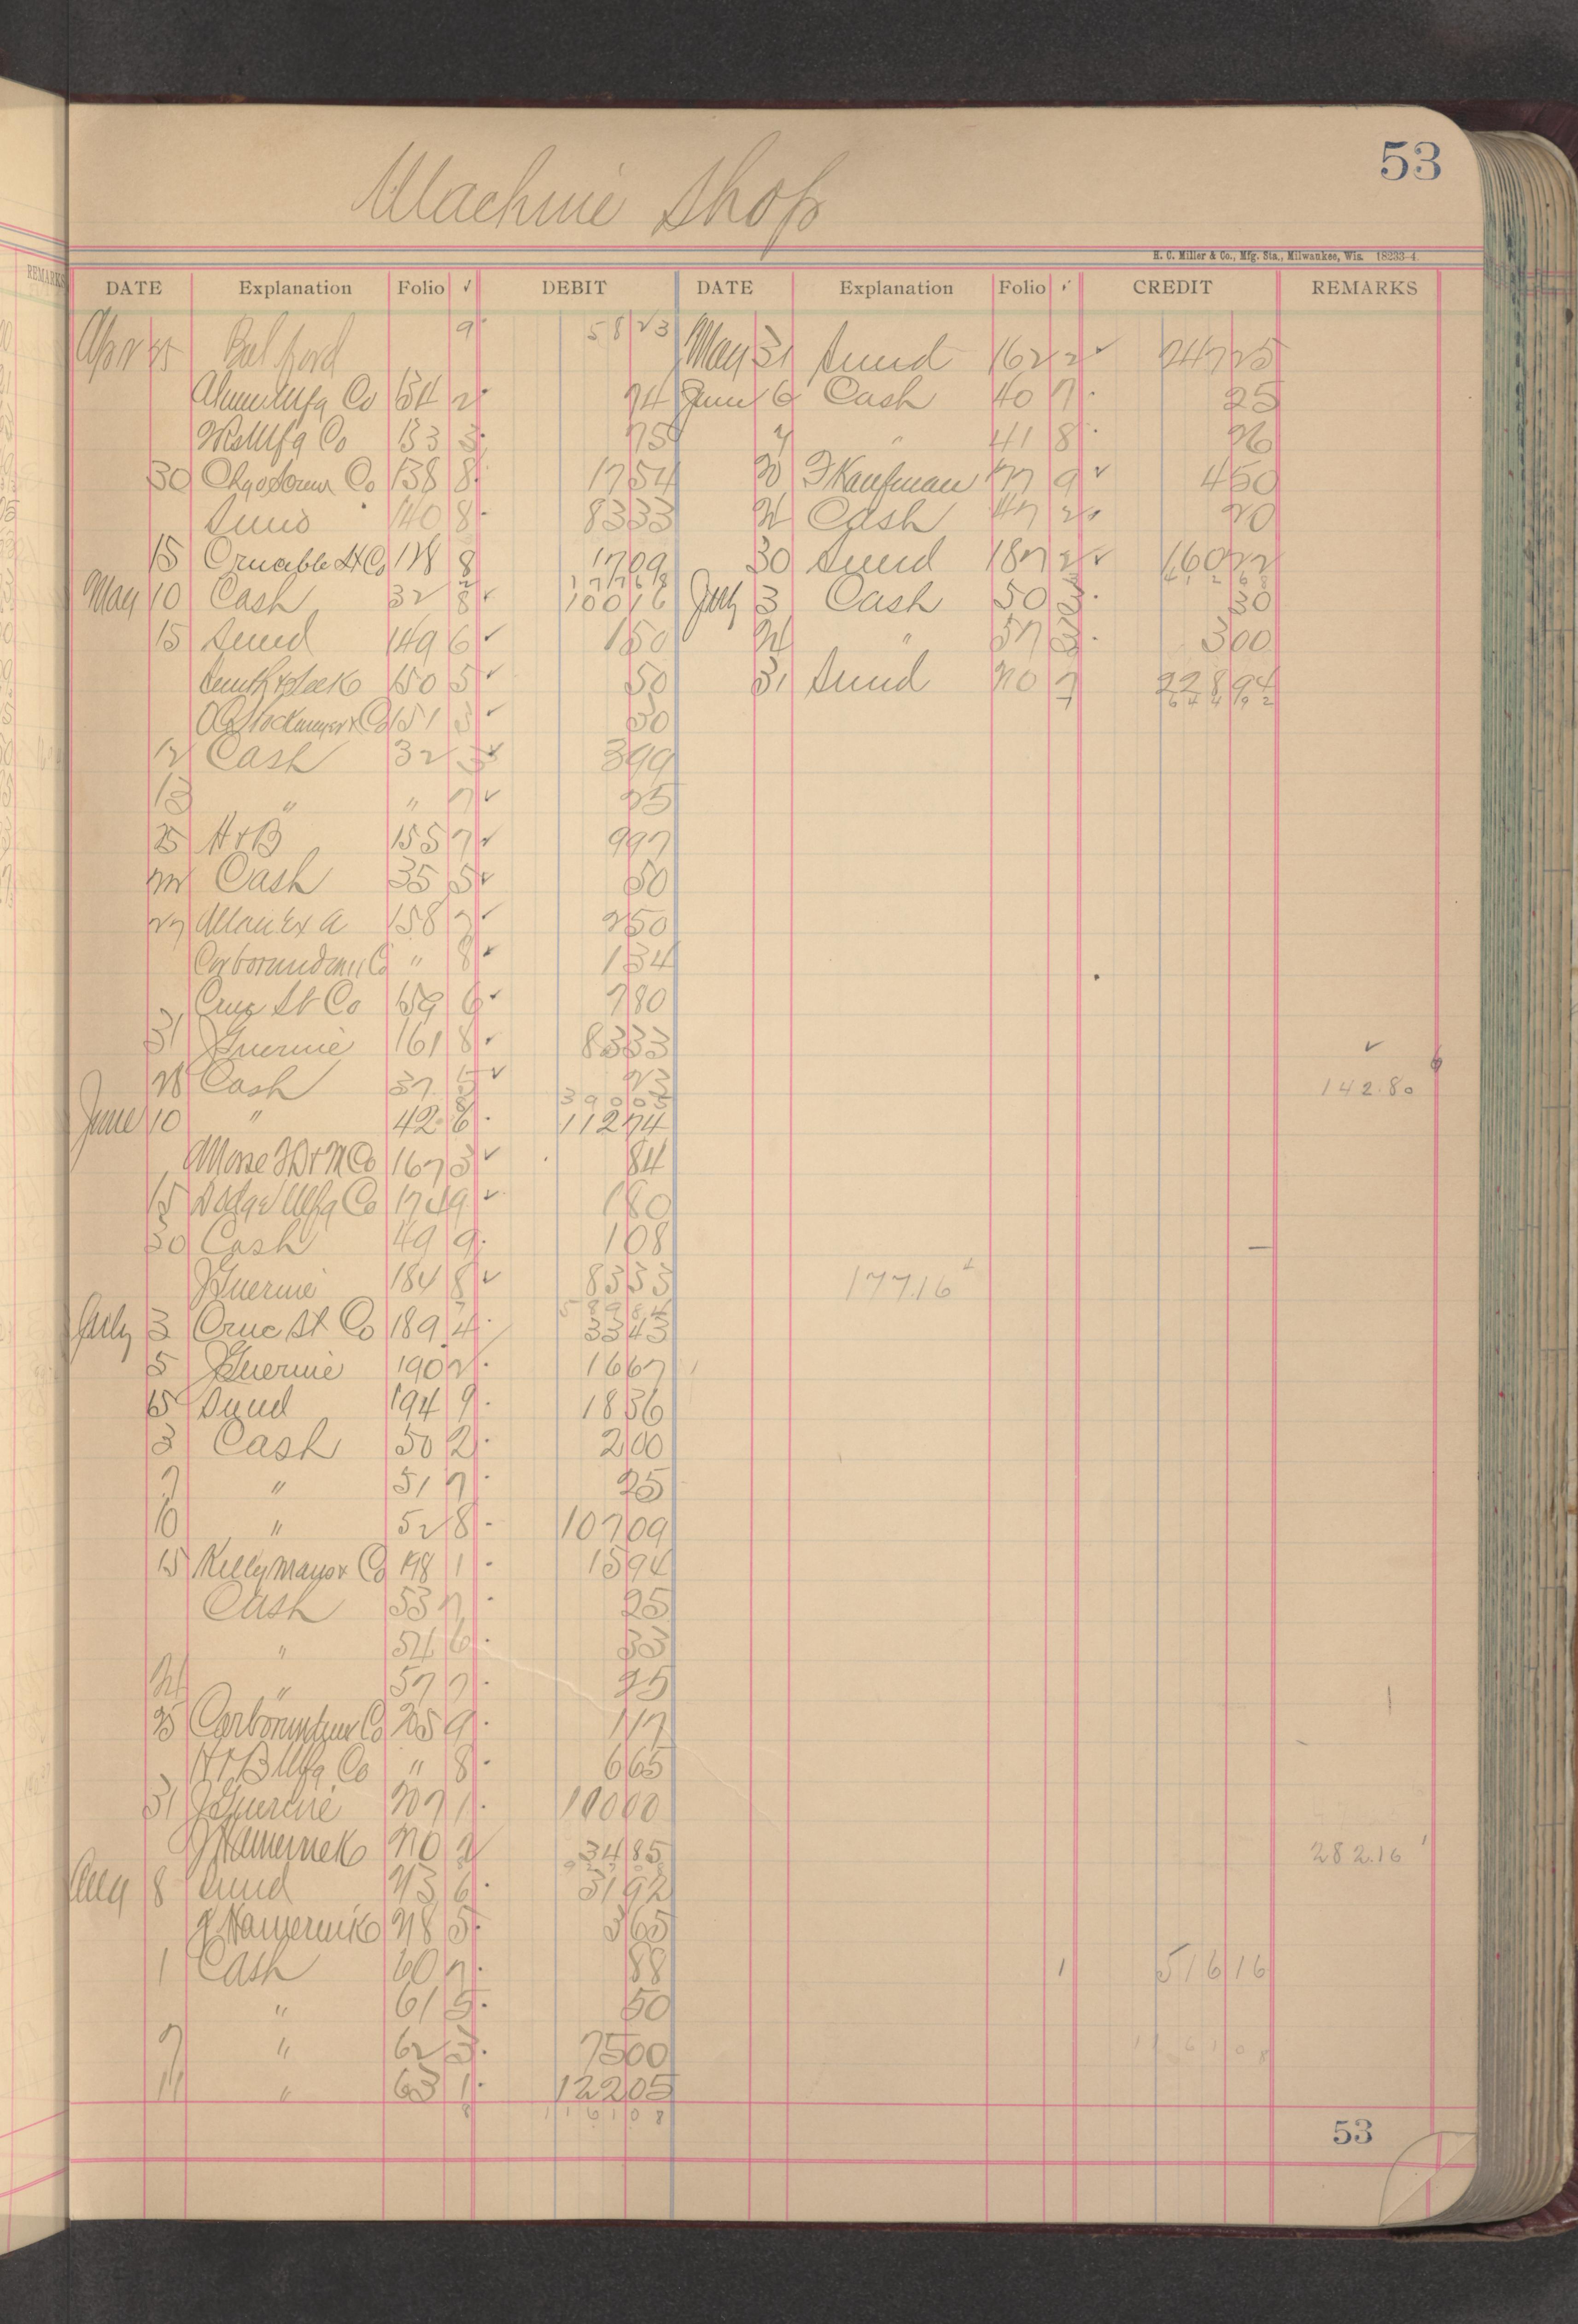 53
Machine Shop
H. C. Miller & Co., Mfg. Sta., Milwaukee, Wis. 18233-4.
DATE Explanation Folio ✓ DEBIT DATE Explanation Folio ✓ CREDIT REMARKS
Bal ford 9 58 23 May 31 Sund 162 2 ✓ 247 25
Mfg Co 134 2 24 June 6 Cash 40 7 25
Mfg Co 133 3 75 7 " 41 8 26
30 Co 138 8 17 54 20 F Kaufman 177 9 ✓ 4 50
140 8 83 33 21 Cash 47 2 20
15 Crucible St Co 128 8 17 09 30 Sund 187 2 ✓ 160 22
177 68
May 10 Cash 32 8 ✓ 100 16 July 3 Cash 50 3 30
15 Sund 149 6 ✓ 1 50 21 " 57 3 3 00
150 5 ✓ 50 31 Sund 210 7 228 94
644 92
& Co 151 3 ✓ 30
12 Cash 32 3 ✓ 3 99
13 " " 7 ✓ 25
25 H & B 155 7 ✓ 9 97
22 Cash 35 5 ✓ 50
27 158 7 ✓ 2 50
Carborundum Co " 8 ✓ 1 34
Cruc St Co 159 6 ✓ 7 80
31 J Guerine 161 8 ✓ 83 33 ✓
28 Cash 37 5 ✓ 23 142.80
390 03
June 10 " 42 8 112 74
Morse T D & M Co 167 3 ✓ 84
15 Dodge Mfg Co 174 9 ✓ 1 80
30 Cash 49 9 1 08
J Guerine 184 8 ✓ 83 33 177.16
589 84
July 3 Cruc St Co 189 4 33 43
5 J Guerine 190 2 16 67
15 Sund 194 9 18 36
3 Cash 50 2 2 00
7 " 51 7 25
10 " 52 8 107 09
15 Kelly Maus & Co 198 1 15 94
Cash 53 7 25
" 54 6 33
21 " 57 7 25
25 Carborundum Co 205 9 1 17
H & B Mfg Co " 8 6 65
31 J Guerine 207 1 100 00
J Hamernek 210 2 34 85 282.16
Aug 8 Sund 213 6 31 92
J Hamernik 218 5 3 65
1 Cash 60 7 88 1 516 16
" 61 5 50
7 " 62 3 75 00 1161 08
11 " 63 1 122 05
1161 08
53